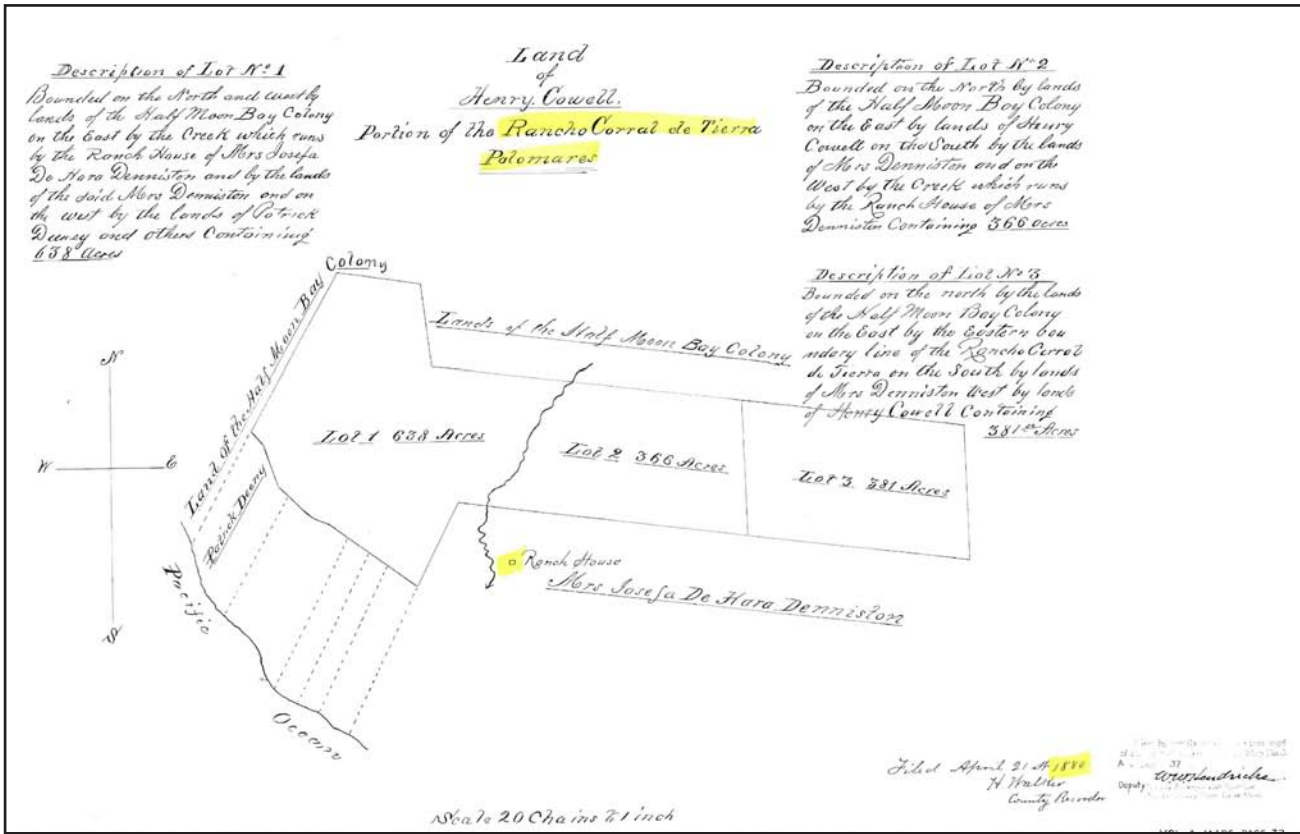 Land
of
Henry. Cowell.
Portion of the Rancho Corral de Tierra
Palomares
Description of Lot Nº 1
Bounded on the North and west by
lands of the Half Moon Bay Colony
on the East by the Creek which runs
by the Ranch House of Mrs Josefa
De Hara Denniston and by the lands
of the said Mrs Denniston and on
the west by the lands of Patrick
Deeney and others Containing
638 Acres
Description of Lot Nº 2
Bounded on the North by lands
of the Half Moon Bay Colony
on the East by lands of Henry
Cowell on the South by the lands
of Mrs Denniston and on the
West by the Creek which runs
by the Ranch House of Mrs
Denniston Containing 366 acres
Description of Lot Nº 3
Bounded on the north by the lands
of the Half Moon Bay Colony
on the East by the Eastern bou
ndary line of the Rancho Corral
de Tierra on the South by lands
of Mrs Denniston West by lands
of Henry Cowell Containing
381 Acres
Land of the Half Moon Bay Colony
Lands of the Half Moon Bay Colony
N
W
E
S
Lot 1 638 Acres
Lot 2 366 Acres
Lot 3 381 Acres
Patrick Deeny
Ranch House
Mrs Josefa De Hara Denniston
Pacific
Ocean
Filed April 21st 1880
H Walker
County Recorder
Deputy WWHendricks
Scale 20 Chains to 1 inch